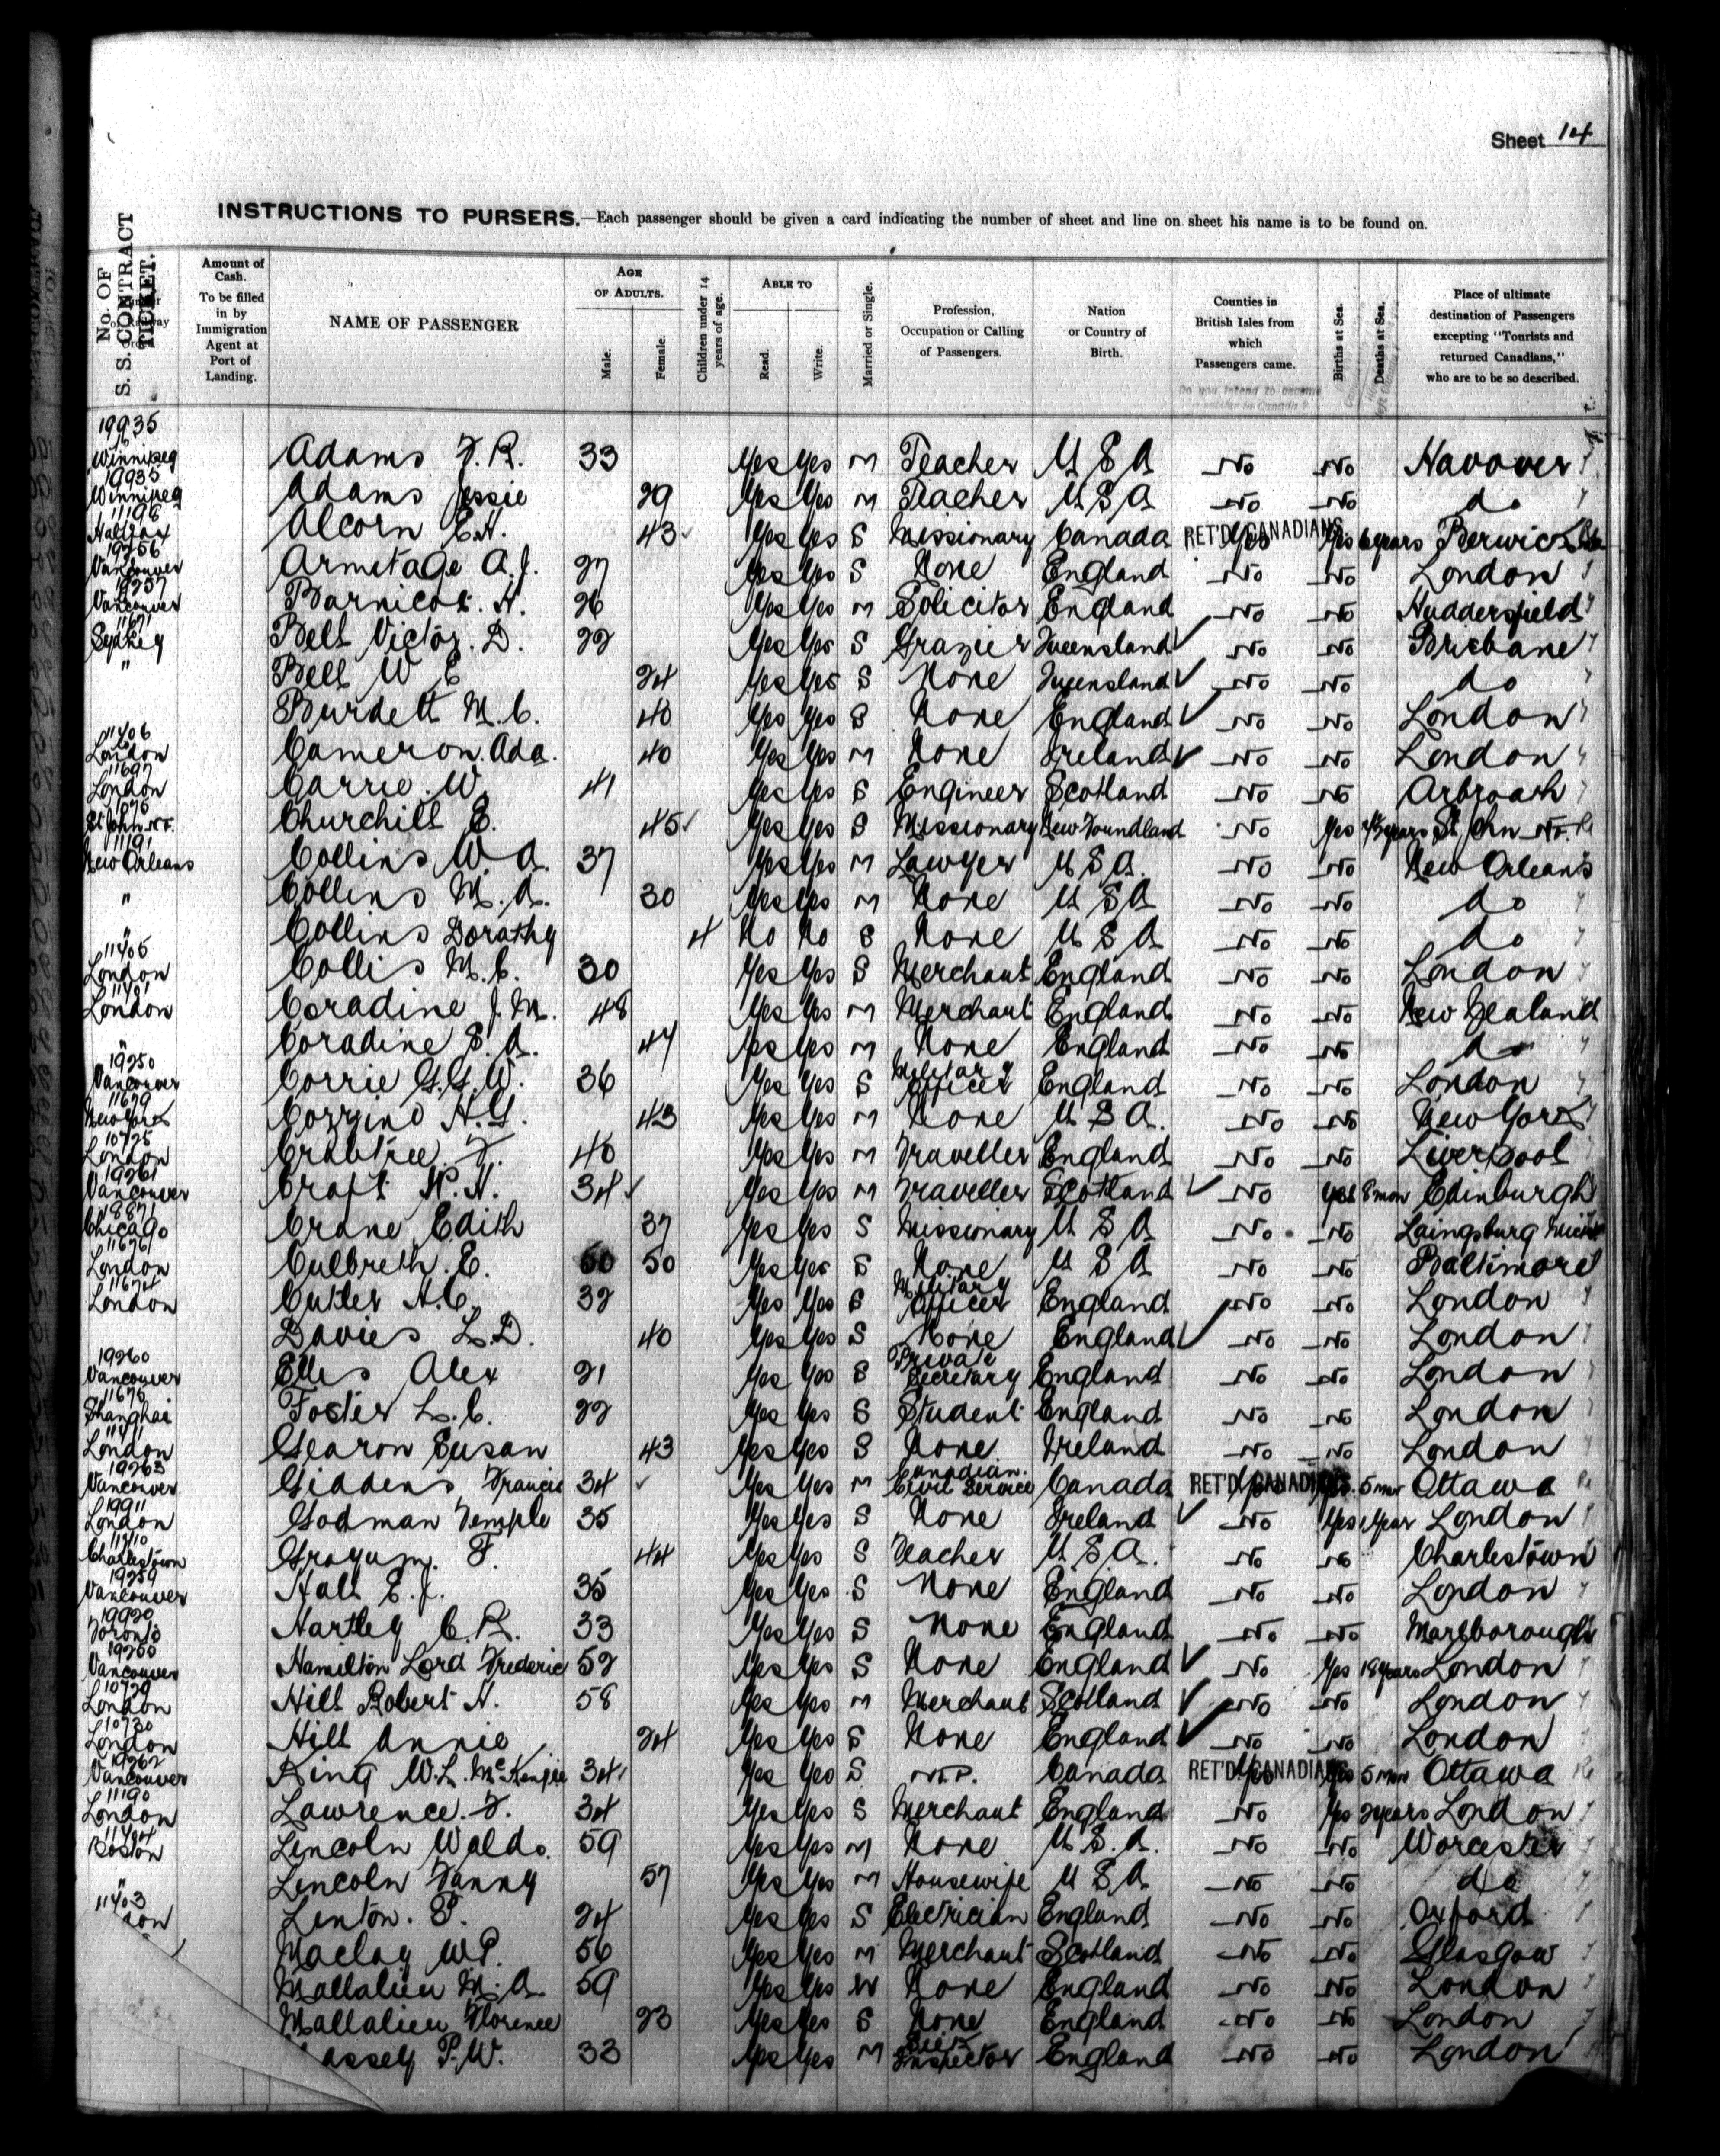 Sheet 14
INSTRUCTIONS TO PURSERS.—Each passenger should be given a card indicating the number of sheet and line on sheet his name is to be found on.
No. OF S. S. CONTRACT TICKET.
Amount of Cash. To be filled in by Immigration Agent at Port of Landing.
NAME OF PASSENGER
AGE OF ADULTS.
Male.
Female.
Children under 14 years of age.
ABLE TO
Read.
Write.
Married or Single.
Profession, Occupation or Calling of Passengers.
Nation or Country of Birth.
Counties in British Isles from which Passengers came.
Do you intend to become a settler in Canada?
Births at Sea.
Deaths at Sea.
Place of ultimate destination of Passengers excepting "Tourists and returned Canadians," who are to be so described.
19935 Winnipeg Adams F. R. 33 Yes Yes M Teacher U S A No No Hanover
19935 Winnipeg Adams Jessie 29 Yes Yes M Teacher U S A No No do
11196 Halifax Alcorn E. H. 43 Yes Yes S Missionary Canada RET'D CANADIANS Yes Yes 6 years Berwick
19256 Vancouver Armitage A. J. 27 Yes Yes S None England No No London
19257 Vancouver Barnicot. H. 26 Yes Yes M Solicitor England No No Huddersfield
11671 Sydney Bell Victor. D. 22 Yes Yes S Grazier Queensland No No Brisbane
" Bell W E 24 Yes Yes S None Queensland No No do
Burdett M. C. 40 Yes Yes S None England No No London
11406 London Cameron. Ada. 40 Yes Yes M None Ireland No No London
11697 London Carrie. W. 41 Yes Yes S Engineer Scotland No No Arbroath
St John NF. Churchill E. 45 Yes Yes S Missionary New Foundland No Yes years St John NF.
11191 New Orleans Collins W A. 37 Yes Yes M Lawyer U S A. No No New Orleans
" Collins M. A. 30 Yes Yes M None U S A No No do
" Collins Dorathy 4 No No S None U S A No No do
11405 London Collis M. C. 30 Yes Yes S Merchant England No No London
London Coradine J. M. 48 Yes Yes M Merchant England No No New Zealand
" Coradine S. A. 44 Yes Yes M None England No No do
19250 Vancouver Corrie G. G. W. 36 Yes Yes S Military Officer England No No London
11679 New York Cozzino A. G. 43 Yes Yes M None U S A. No No New York
10725 London Crabtree F. 40 Yes Yes M Traveller England No No Liverpool
19261 Vancouver Craft H. H. 34 Yes Yes M Traveller Scotland No Yes 8 mon Edinburgh
Chicago Crane Edith 37 Yes Yes S Missionary U S A No No Laingsburg Mich
11676 London Culbreth. E. 50 Yes Yes S None U S A No No Baltimore
11674 London Cutler H. C. 32 Yes Yes S Military Officer England No No London
Davies L. D. 40 Yes Yes S None England No No London
19260 Vancouver Elles Alex 21 Yes Yes S Private Secretary England No No London
11675 Shanghai Foster L. C. 22 Yes Yes S Student England No No London
London Gearon Susan 43 Yes Yes S None Ireland No No London
19263 Vancouver Giddens Francis 34 Yes Yes M Canadian. Civil Service Canada RET'D CANADIANS Yes Yes. 5 mon Ottawa
19911 London Godman Temple 35 Yes Yes S None Ireland No Yes 1 Year London
11410 Charlestown Grayum. F. 44 Yes Yes S Teacher U. S. A. No No Charlestown
19259 Vancouver Hall E. J. 35 Yes Yes S None England No No London
19920 Toronto Hartley C. R. 33 Yes Yes S None England No No Marlborough
19250 Vancouver Hamilton Lord Frederic 52 Yes Yes S None England No Yes 18 years London
10729 London Hill Robert H. 58 Yes Yes M Merchant Scotland No No London
10730 London Hill Annie 24 Yes Yes S None England No No London
19262 Vancouver King W. L. McKenzie 34 Yes Yes S M. P. Canada RET'D CANADIANS Yes Yes 5 mon Ottawa
11190 London Lawrence. F. 34 Yes Yes S Merchant England No Yes 2 years London
11404 Boston Lincoln Waldo. 59 Yes Yes M None U. S. A. No No Worcester
" Lincoln Fanny 57 Yes Yes M Housewife U S A No No do
11403 Linton. P. 24 Yes Yes S Electrician England No No Oxford
Maclay W P. 56 Yes Yes M Merchant Scotland No No Glasgow
Mallalieu M. A. 59 Yes Yes W None England No No London
Mallalieu Florence 23 Yes Yes S None England No No London
assey P. W. 33 Yes Yes M Inspector England No No London